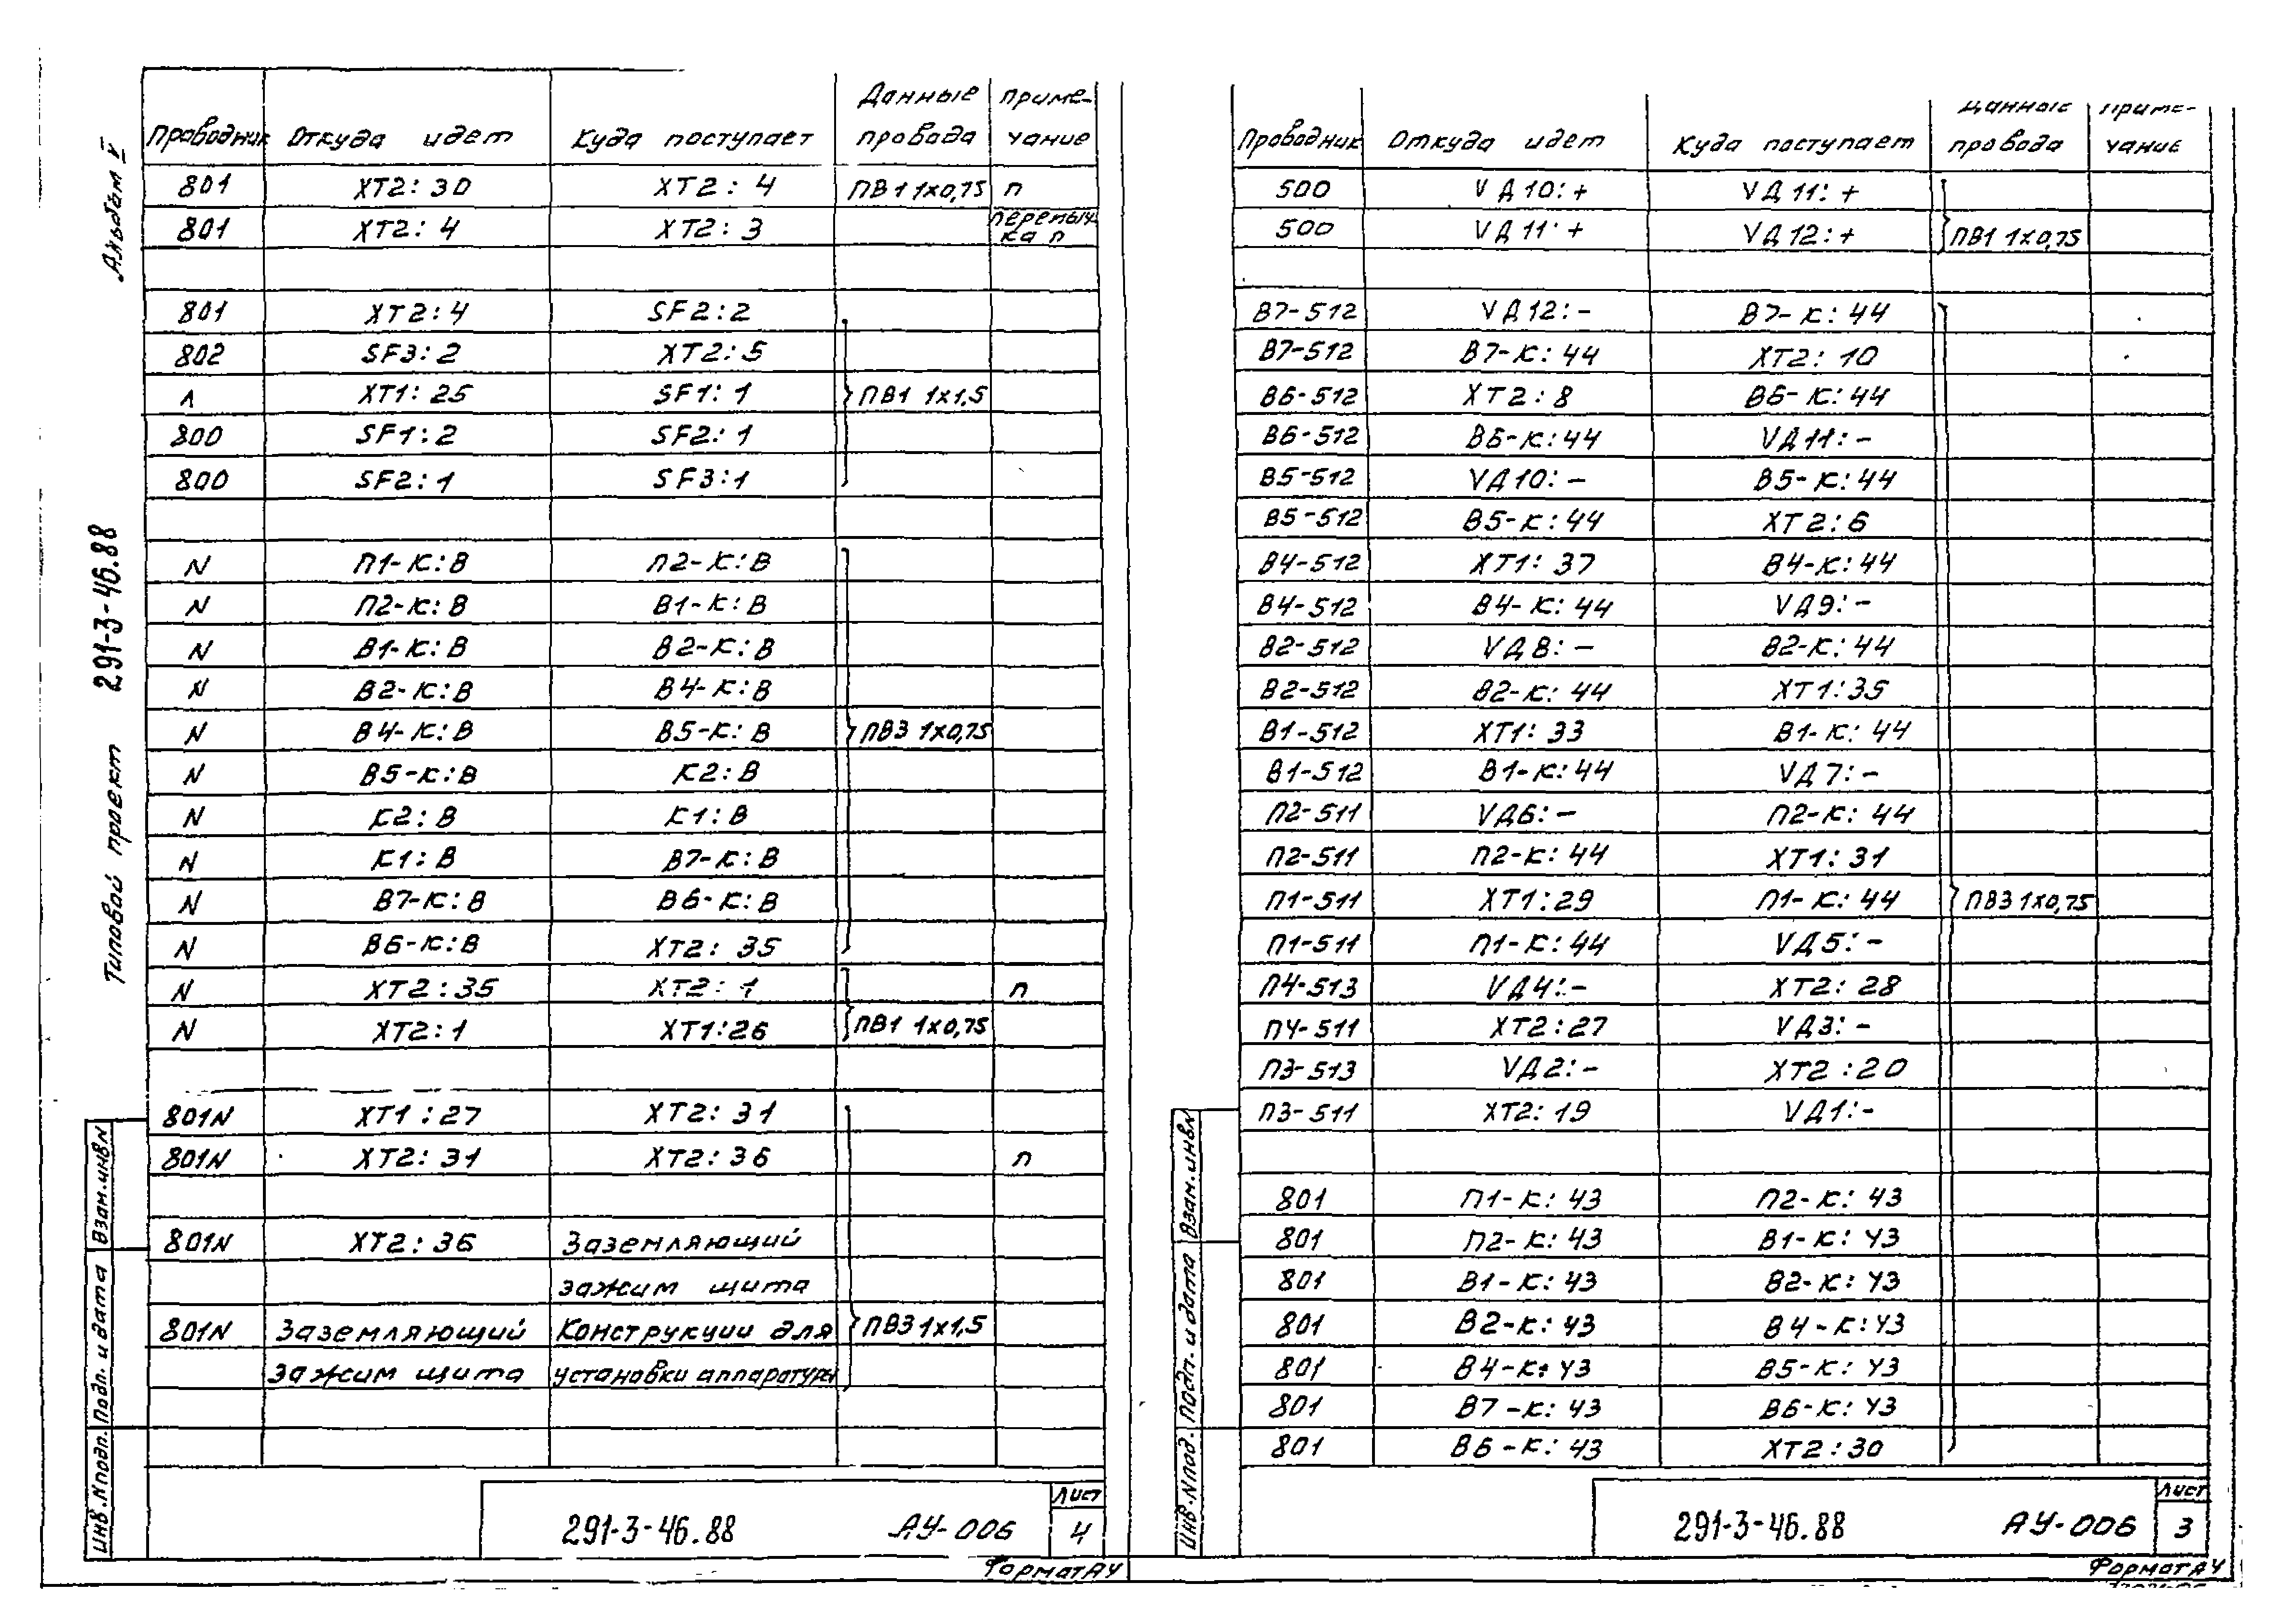 Альбом V
Типовой проект 291-3-46.88
Проводник Откуда идет Куда поступает Данные провода Примечание
801 XT2: 30 XT2: 4 ПВ1 1x0,75 п
801 XT2: 4 XT2: 3 перемычка п
801 XT2: 4 SF2: 2
802 SF3: 2 XT2: 5
А XT1: 25 SF1: 1 ПВ1 1x1,5
800 SF1: 2 SF2: 1
800 SF2: 1 SF3: 1
N П1-К: В П2-К: В
N П2-К: В В1-К: В
N В1-К: В В2-К: В
N В2-К: В В4-К: В
N В4-К: В В5-К: В ПВ3 1x0,75
N В5-К: В К2: В
N К2: В К1: В
N К1: В В7-К: В
N В7-К: В В6-К: В
N В6-К: В XT2: 35
N XT2: 35 XT2: 1 п
N XT2: 1 XT1: 26 ПВ1 1x0,75
801N XT1: 27 XT2: 31
801N XT2: 31 XT2: 36 п
801N XT2: 36 Заземляющий
зажим щита
801N Заземляющий Конструкции для ПВ3 1x1,5
зажим щита установки аппаратуры
Взам.инвN
Подп. и дата
Инв.Nподл.
291-3-46.88 АУ-006 Лист 4
Формат А4
Проводник Откуда идет Куда поступает Данные провода Примечание
500 VД10: + VД11: +
500 VД11: + VД12: + ПВ1 1x0,75
В7-512 VД12: - В7-К: 44
В7-512 В7-К: 44 XT2: 10
В6-512 XT2: 8 В6-К: 44
В6-512 В6-К: 44 VД11: -
В5-512 VД10: - В5-К: 44
В5-512 В5-К: 44 XT2: 6
В4-512 XT1: 37 В4-К: 44
В4-512 В4-К: 44 VД9: -
В2-512 VД8: - В2-К: 44
В2-512 В2-К: 44 XT1: 35
В1-512 XT1: 33 В1-К: 44
В1-512 В1-К: 44 VД7: -
П2-511 VД6: - П2-К: 44
П2-511 П2-К: 44 XT1: 31
П1-511 XT1: 29 П1-К: 44 ПВ3 1x0,75
П1-511 П1-К: 44 VД5: -
П4-513 VД4: - XT2: 28
П4-511 XT2: 27 VД3: -
П3-513 VД2: - XT2: 20
П3-511 XT2: 19 VД1: -
801 П1-К: 43 П2-К: 43
801 П2-К: 43 В1-К: 43
801 В1-К: 43 В2-К: 43
801 В2-К: 43 В4-К: 43
801 В4-К: 43 В5-К: 43
801 В7-К: 43 В6-К: 43
801 В6-К: 43 XT2: 30
Взам.инвN
Подп. и дата
Инв.Nподл.
291-3-46.88 АУ-006 Лист 3
Формат А4